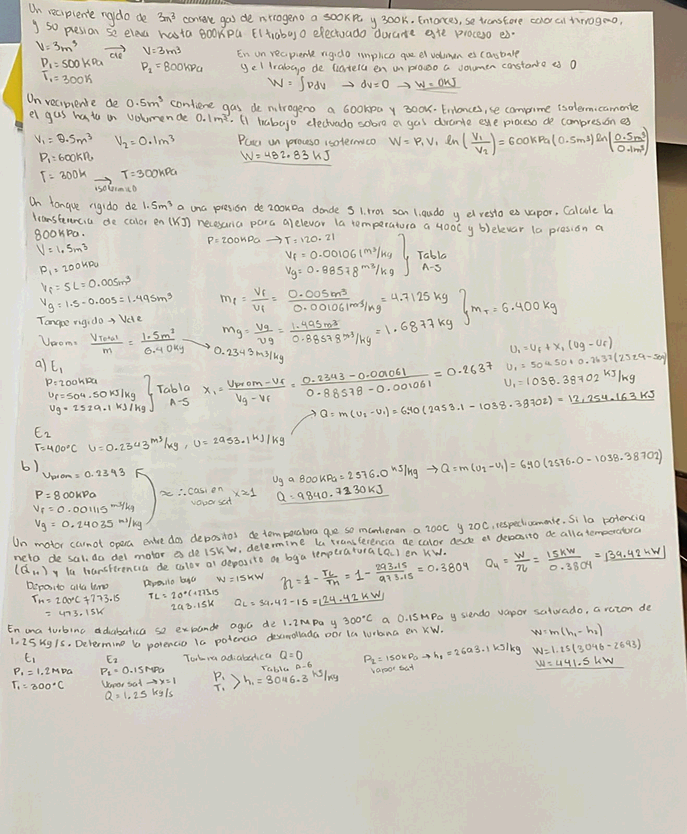 Un recipiente rigido de 3m³ contiene gas de nitrogeno a 500KPa y 300K. Entonces, se transfiere calor al nitrogeno,
y su presion se eleva hasta 800KPa El trabajo efectuado durante este proceso es.
V=3m³ → cte V=3m³
P₁=500KPa P₂=800KPa
T₁=300K
En un recipiente rigido implica que el volumen es constante
y el trabajo de frontera en un proceso a volumen constante es 0
W=∫Pdv → dv=0 → W=0KJ
Un recipiente de 0.5m³ contiene gas de nitrogeno a 600kpa y 300K. Entonces, se comprime isotermicamente
el gas hasta un volumen de 0.1m³. El trabajo efectuado sobre el gas durante este proceso de compresión es
V₁=0.5m³ V₂=0.1m³
P₁=600KPa
T=300K → isotermico T=300KPa
Para un proceso isotermico W=P₁V₁ ln(V₁/V₂)=600KPa(0.5m³)ln(0.5m³/0.1m³)
W=482.83KJ
Un tanque rigido de 1.5m³ a una presion de 200KPa donde 5 litros son liquido y el resto es vapor. Calcule la
transferencia de calor en (KJ) necesaria para a) elevar la temperatura a 400C y b) elevar la presion a
800KPa.
V=1.5m³
P₁=200KPa
Vf=5L=0.005m³
Vg=1.5-0.005=1.495m³
Tanque rigido → Vcte
P=200KPa → T=120.21
vf=0.001061m³/kg
vg=0.88578m³/kg } Tabla A-5
mf=Vf/vf=0.005m³/0.001061m³/kg=4.7125kg
mg=Vg/vg=1.495m³/0.88578m³/kg=1.6877kg } mT=6.400kg
Vprom=VTotal/m=1.5m³/6.40kg → 0.2343m³/kg
a) E₁
P=200KPa
Uf=504.50KJ/kg
Ug=2529.1KJ/kg } Tabla A-5
x₁=Vprom-vf/Vg-Vf=0.2343-0.001061/0.88578-0.001061=0.2637
U₁=Uf+x₁(Ug-Uf)
U₁=504.50+0.2637(2529-504)
U₁=1038.38702KJ/kg
E₂
T=400°C U=0.2343m³/kg, U=2953.1KJ/kg → Q=m(U₂-U₁)=6.40(2953.1-1038.38702)=12,254.163KJ
b) Vprom=0.2343
P=800KPa
Vf=0.001115m³/kg
Vg=0.24035m³/kg
≈∴casi en vapor sat x≈1
Ug a 800KPa=2576.0KJ/kg → Q=m(u₂-u₁)=6.40(2576.0-1038.38702)
Q=9840.7230KJ
Un motor carnot opera entre dos depositos de temperatura que se mantienen a 200C y 20C, respectivamente. Si la potencia
neta de salida del motor es de 15KW, determine la transferencia de calor desde el deposito de alta temperatura
(QH) y la transferencia de calor al deposito de baja temperatura (QL) en KW.
Deposito alta temp
TH=200°C+273.15
=473.15K
Deposito baja
TL=20°C+273.15
293.15K
W=15KW
η=1-TL/TH=1-293.15/473.15=0.3804
QH=W/η=15KW/0.3804=39.42KW
QL=39.42-15=24.42KW
En una turbina adiabatica se expande agua de 1.2MPa y 300°C a 0.15MPa y siendo vapor saturado, a razon de
1.25Kg/s. Determine la potencia la potencia desarrollada por la turbina en KW.
E₁
P₁=1.2MPa
T₁=300°C
E₂
P₂=0.15MPa
Vapor sat → x=1
Q=1.25kg/s
Turbina adiabatica Q=0
P₁ T₁ > Tabla A-6 h₁=3046.3KJ/kg
P₂=150KPa → h₂=2693.1KJ/kg
vapor sat
W=m(h₁-h₂)
W=1.25(3046-2693)
W=441.5KW